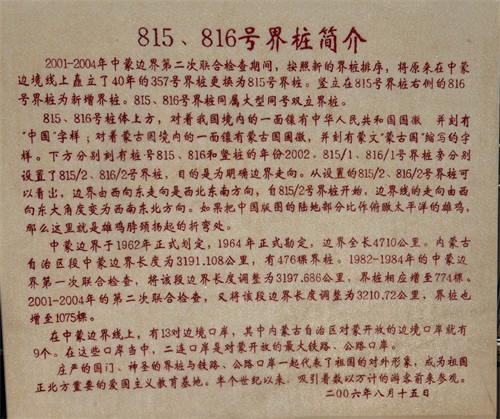 815、816号界桩简介
2001-2004年中蒙边界第二次联合检查期间，按照新的界桩排序，将原来在中蒙
边境线上矗立了40年的357号界桩更换为815号界桩。竖立在815号界桩右侧的816
号界桩为新增界桩。815、816号界桩同属大型同号双立界桩。
815、816号桩体上方，对着我国境内的一面镶有中华人民共和国国徽 并刻有
“中国”字样；对着蒙古国境内的一面镶有蒙古国国徽，并刻有蒙文“蒙古国”缩写的字
样。下方分别刻有桩号815、816和竖桩的年份2002。815/1、816/1号界桩旁分别
设置了815/2、816/2号界桩，目的是为明确边界走向。从设置的815/2、816/2号界桩可
以看出，边界由西向东走向是西北东南方向，自815/2号界桩开始，边界线的走向由西
向东大角度变为西南东北方向。如果把中国版图的陆地部分比作俯瞰太平洋的雄鸡，
那么这里就是雄鸡脖颈扬起的折弯处。
中蒙边界于1962年正式划定，1964年正式勘定，边界全长4710公里。内蒙古
自治区段中蒙边界长度为3191.108公里，有476棵界桩。1982-1984年的中蒙边
界第一次联合检查，将该段边界长度调整为3197.686公里，界桩相应增至774棵。
2001-2004年的第二次联合检查，又将该段边界长度调整为3210.72公里，界桩也
增至1075棵。
在中蒙边界线上，有13对边境口岸，其中内蒙古自治区对蒙开放的边境口岸就有
9个。在这些口岸当中，二连口岸是对蒙开放的最大铁路、公路口岸。
庄严的国门、神圣的界桩与铁路、公路口岸一起代表了祖国的对外形象，成为祖国
正北方重要的爱国主义教育基地。半个世纪以来，吸引着数以万计的游客前来参观。
二00六年八月十五日